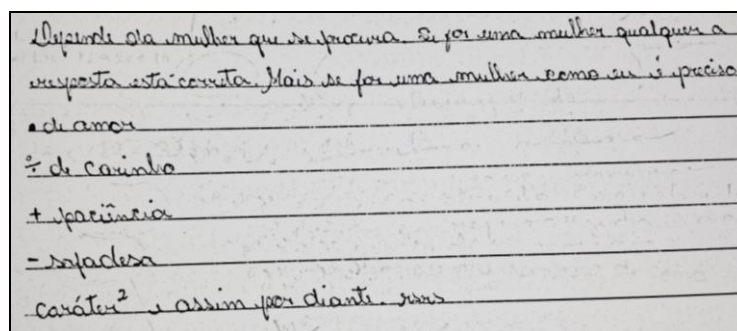 Depende da mulher que se procura. Se for uma mulher qualquer a
resposta está correta. Mais se for uma mulher como eu é preciso
• de amor
÷ de carinho
+ paciência
- safadesa
caráter² e assim por diante. rsrs